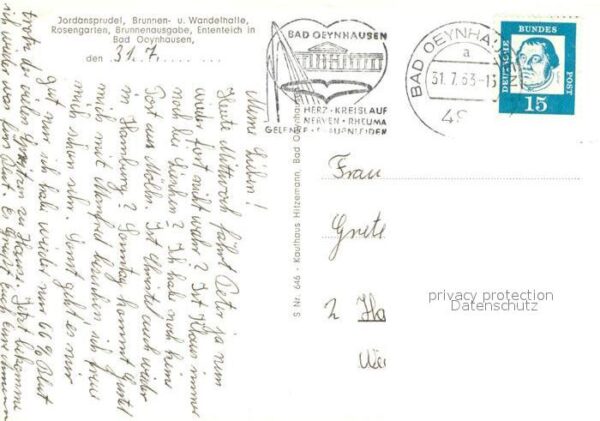 Jordansprudel, Brunnen- u. Wandelhalle,
Rosengarten, Brunnenausgabe, Ententeich in
Bad Oeynhausen,
den 31.7.
Meine Lieben!
Heute Mittwoch fährt Peter ja nun
wieder fort nicht wahr? Ist Klaus immer
noch bei Euchen? Ich hab noch keine
Post aus Mölln. Ist Christel auch wieder
in Hamburg? Sonntag kommt Gustel
mich mit Manfred besuchen ich freue
mich schon sehr. Sonst geht es mir
gut nur ich hab wieder nur 66 % Blut
trotz der vielen Spritzen zu Haus. Jetzt bekomme
ich wieder was fürs Blut. Es grüßt Euch Eure
S Nr. 646 - Kaufhaus Hitzemann, Bad Oeynhausen
BAD OEYNHAUSEN
HERZ · KREISLAUF
NERVEN · RHEUMA
GELENKE · FRAUENLEIDEN
BAD OEYNHAUSEN
a
31.7.63-
49
DEUTSCHE BUNDESPOST
15
Frau
Grete
2 Ha
We
privacy protection
Datenschutz